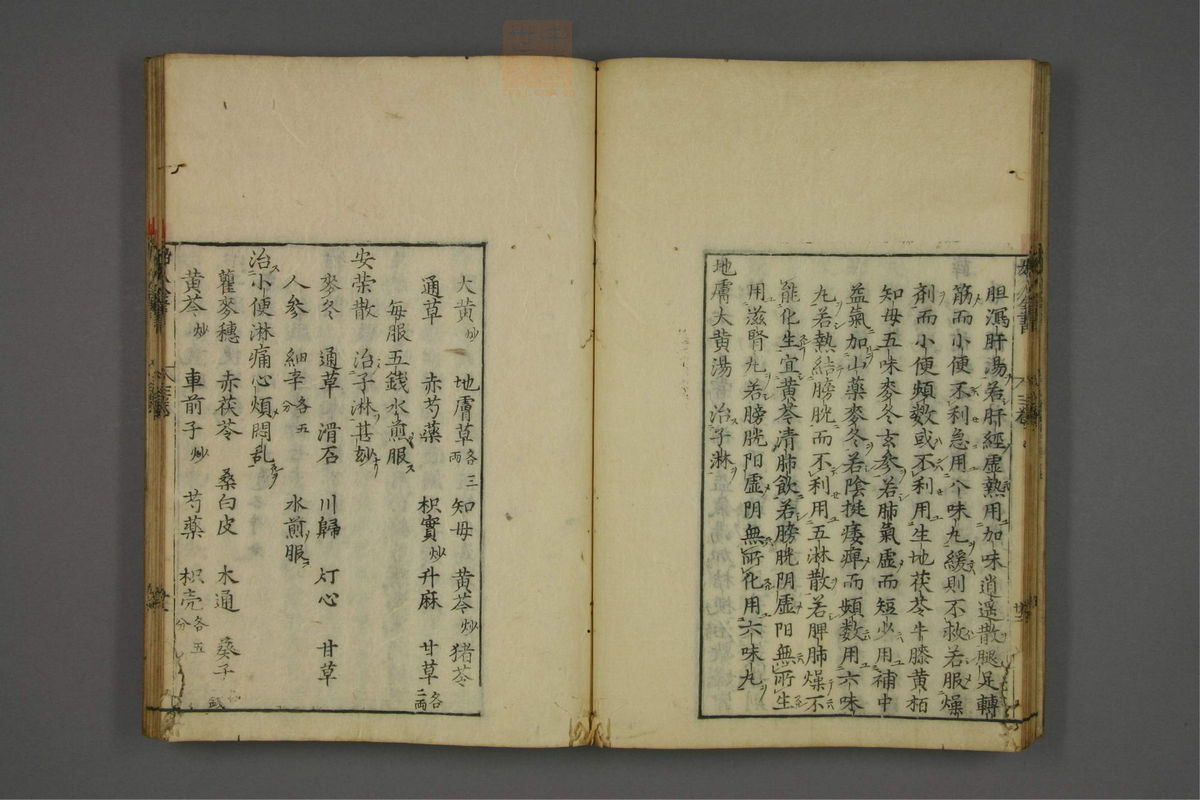 胆瀉肝湯若肝經虛熱用加味逍遥散腿足轉
筋而小便不利急用八味丸緩則不救若服燥
剤而小便頻数或不利用生地茯苓牛膝黄栢
知母五味麥冬玄参若肺氣虛而短少用補中
益氣加山藥麥冬若陰挺痿痺而頻数用六味
丸若熱結膀胱而不利用五淋散若脾肺燥不
能化生宜黄芩清肺飲若膀胱阴虛阳無所生
用滋腎丸若膀胱阳虛阴無所化用六味丸
地膚大黄湯 治子淋
大黄炒 地膚草各三兩 知母 黄芩炒 猪苓
通草 赤芍藥 枳實炒 升麻 甘草各二兩
每服五錢水煎服
安荣散 治子淋甚妙
麥冬 通草 滑石 川歸 灯心 甘草
人参 細辛各五分 水煎服
治小便淋痛心煩悶乱
蘿麥穗 赤茯苓 桑白皮 木通 葵子
黄芩炒 車前子炒 芍藥 枳壳各五分